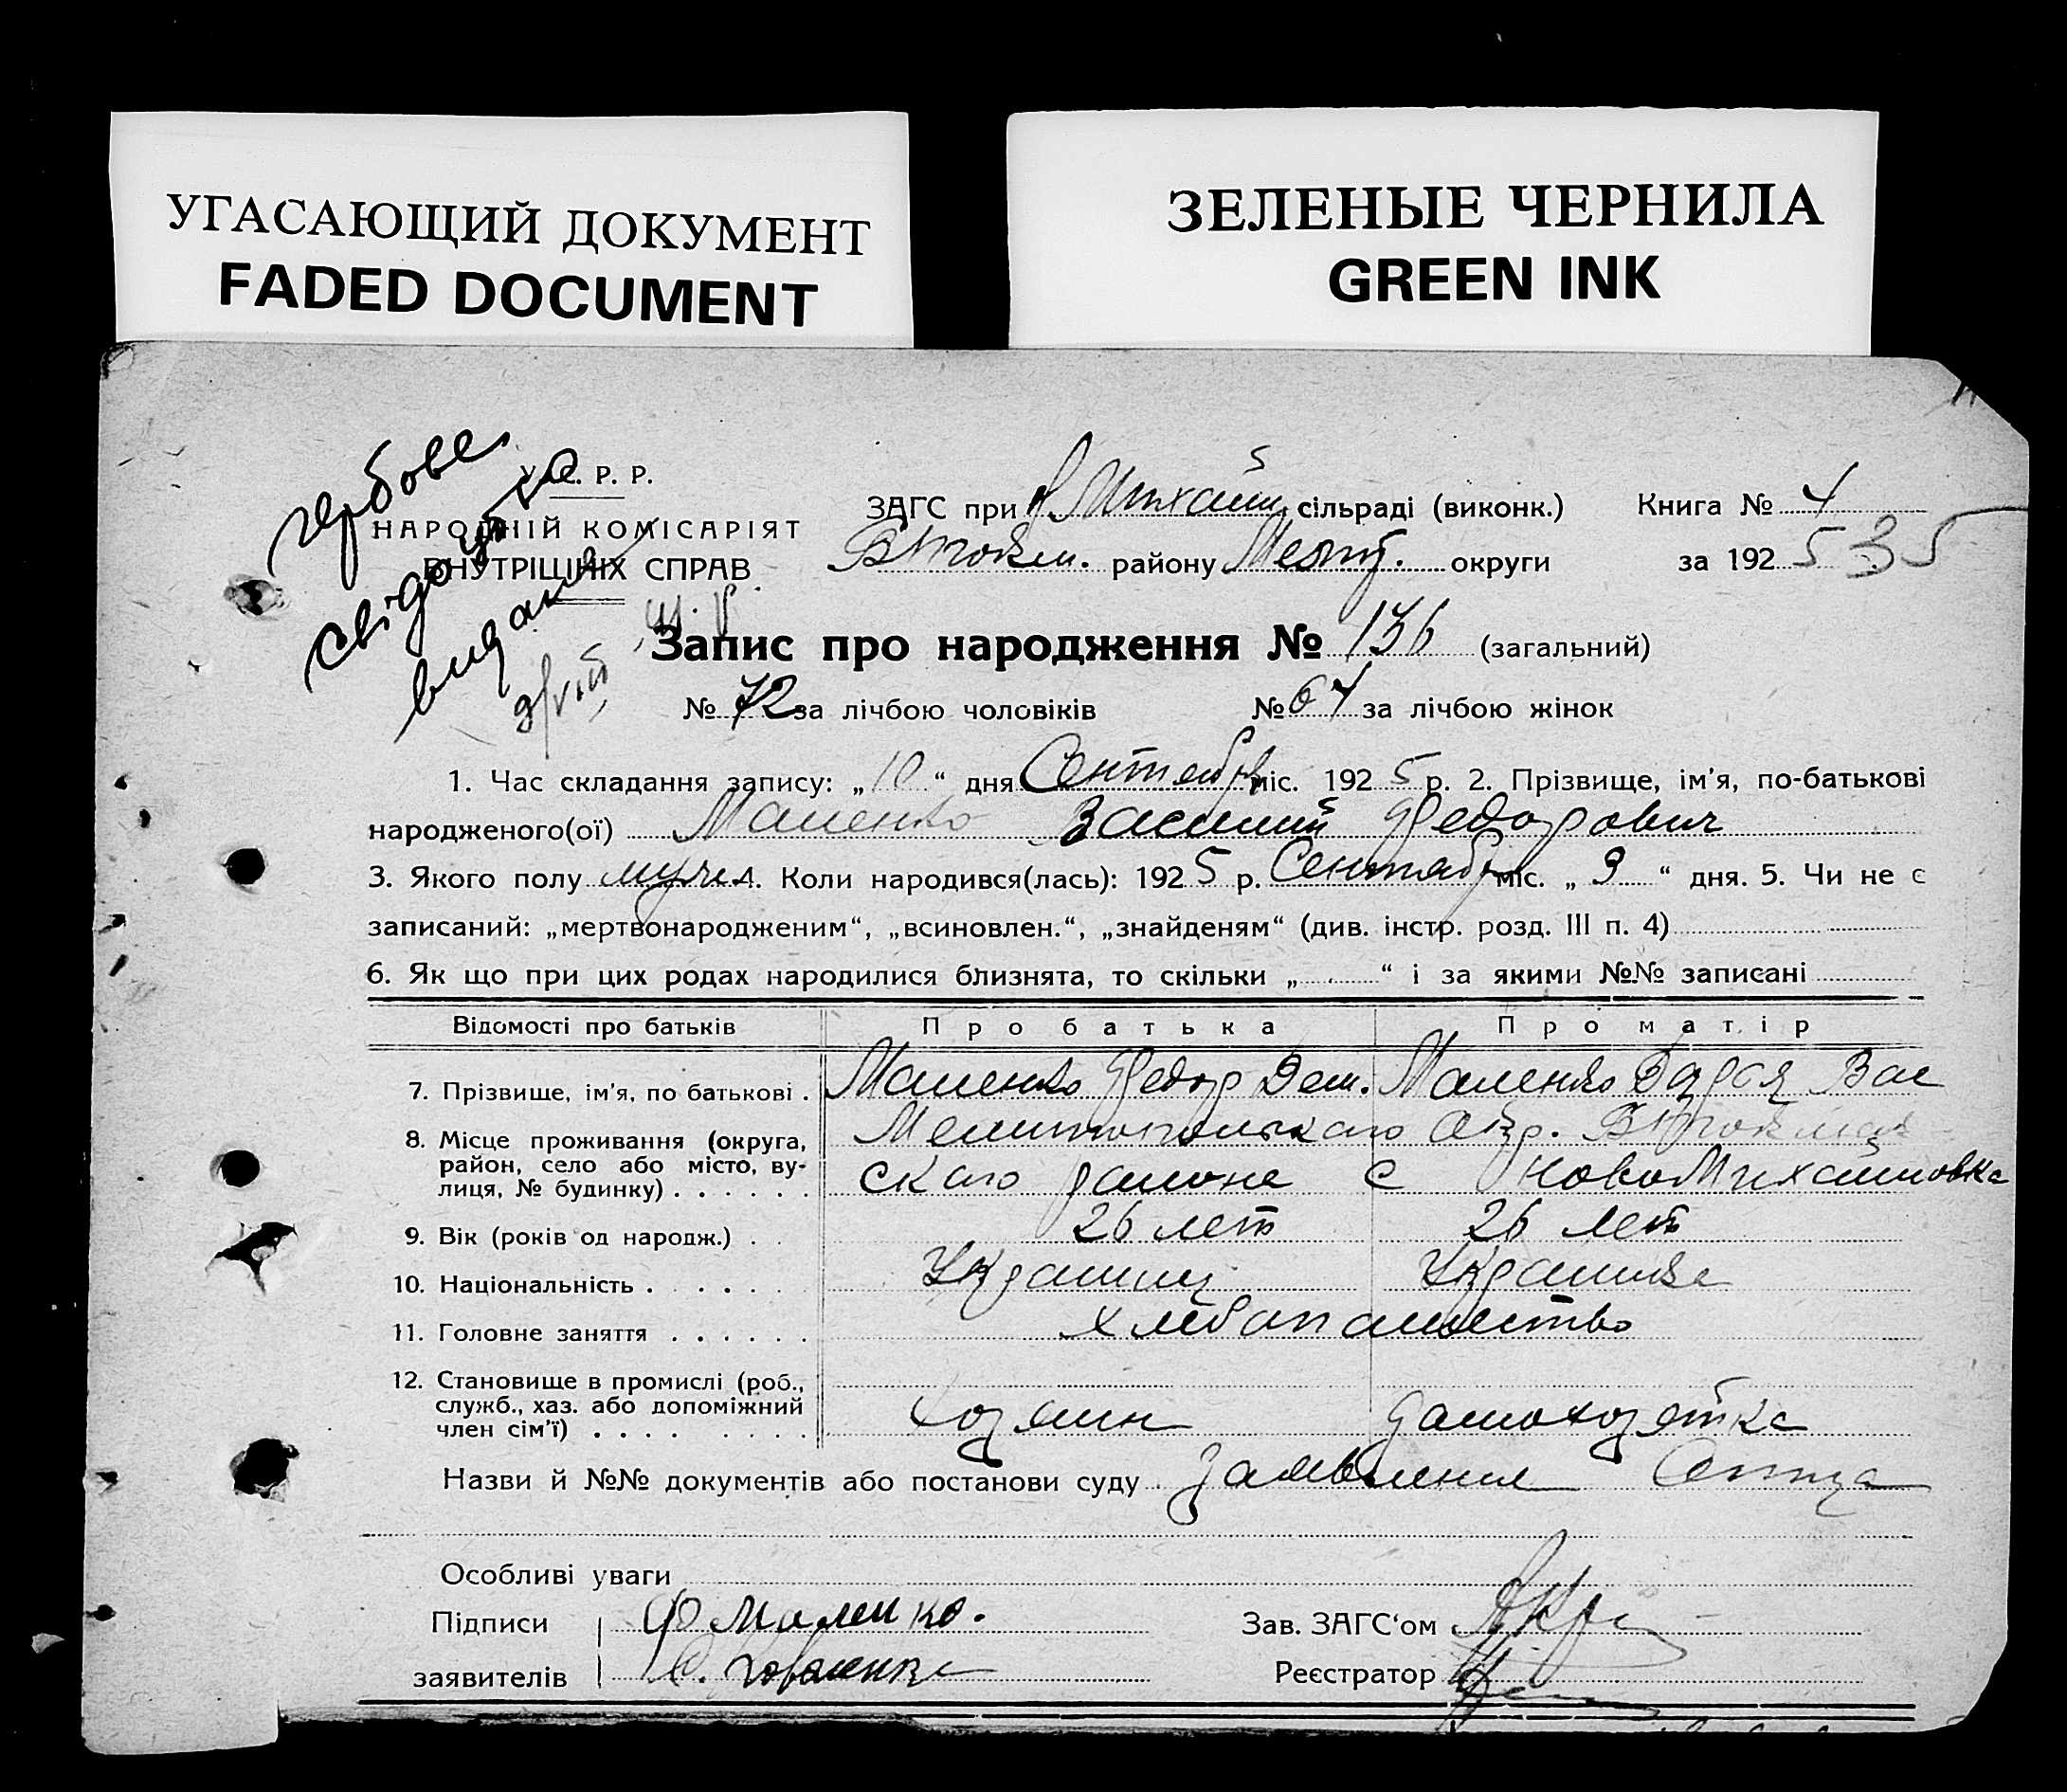 УГАСАЮЩИЙ ДОКУМЕНТ
FADED DOCUMENT
ЗЕЛЕНЫЕ ЧЕРНИЛА
GREEN INK
гербове
свідоцтво
видано
У. С. Р. Р.
НАРОДНІЙ КОМІСАРІЯТ
ВНУТРІШНІХ СПРАВ
ЗАГС при Михай сільраді (виконк.) Книга № 4
району Мелит. округи за 192 5 35
Запис про народження № 136 (загальний)
№ 72 за лічбою чоловіків № 64 за лічбою жінок
1. Час складання запису: „10“ дня Сентебря міс. 192 5 р. 2. Прізвище, ім'я, по-батькові
народженого(ої) Маленко Василий Федорович
3. Якого полу муж 4. Коли народився(лась): 192 5 р. Сентябр міс. „9“ дня. 5. Чи не є
записаний: „мертвонародженим“, „всиновлен.“, „знайденям“ (див. інстр. розд. III п. 4)
6. Як що при цих родах народилися близнята, то скільки „ “ і за якими №№ записані
Відомості про батьків Про батька Про матір
7. Прізвище, ім'я, по батькові . Маленко Федор Дем. Маленко Дарья Вас
8. Місце проживання (округа, Мелитопольскаго Окр.
район, село або місто, ву- скаго района с НовоМихайловка
лиця, № будинку)
9. Вік (років од народж.) 26 лет 26 лет
10. Національність Украинц Украинка
11. Головне заняття хлебопашество
12. Становище в промислі (роб.,
служб., хаз. або допоміжний хозяин домохозяйка
член сім'ї)
Назви й №№ документів або постанови суду Заявление Отца
Особливі уваги
Підписи Ф Маленко.
Зав. ЗАГС'ом
заявителів
Реєстратор